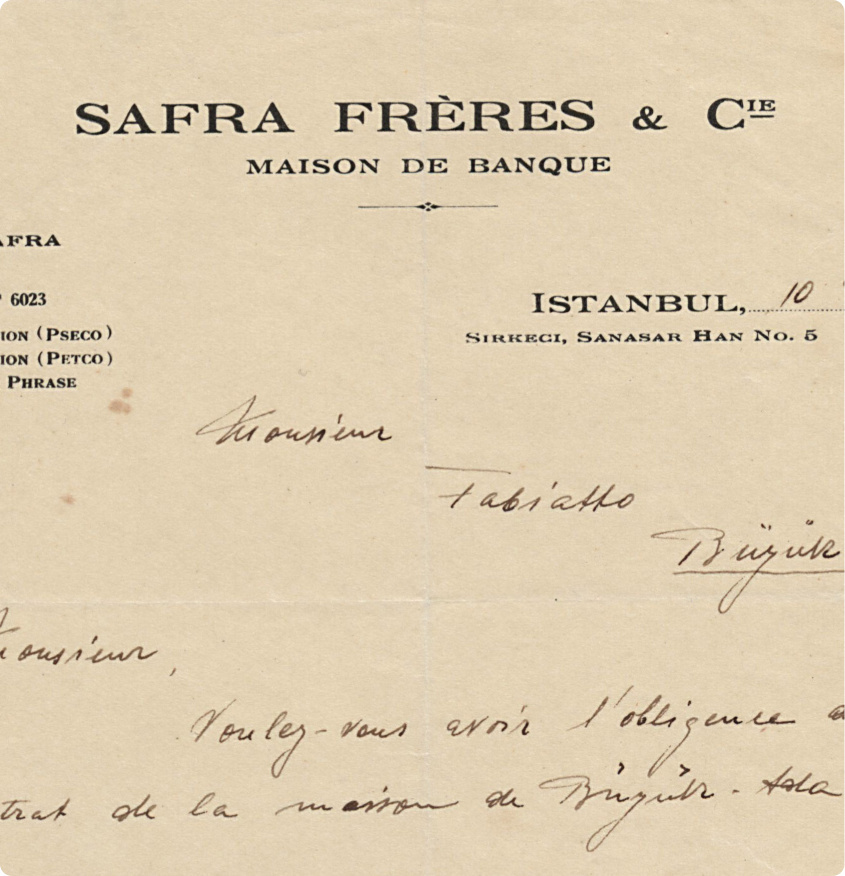 SAFRA FRÈRES & CIE
MAISON DE BANQUE
AFRA
6023
ISTANBUL, 10
ION (PSECO)
SIRKECI, SANASAR HAN No. 5
ION (PETCO)
PHRASE
Monsieur
Fabiatto
Büyük
Monsieur,
Voulez-vous avoir l'obligence
trat de la maison de Büyük-Ada